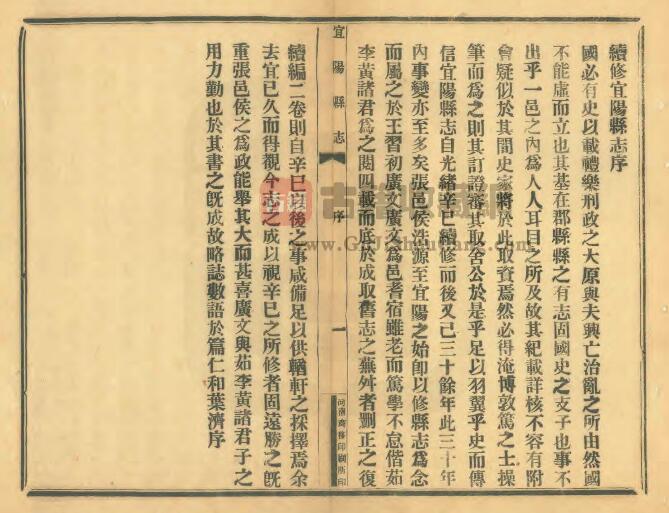 續修宜陽縣志序
國必有史以載禮樂刑政之大原與夫興亡治亂之所由然國
不能虛而立也其基在郡縣縣之有志固國史之支子也事不
出乎一邑之內爲人人耳目之所及故其紀載詳核不容有附
會疑似於其間史家將於此取資焉然必得淹博敦篤之士操
筆而爲之則其訂證審其取舍公於是乎足以羽翼乎史而傳
信宜陽縣志自光緒辛巳續修而後又已三十餘年此三十年
內事變亦至多矣張邑侯浩源至宜陽之始卽以修縣志爲念
而屬之於王習初廣文廣文爲邑耆宿雖老而篤學不怠偕茹
李黃諸君爲之閱四載而底於成取舊志之蕪舛者刪正之復
宜陽縣志
序
一
河南商務印刷所印
續編二卷則自辛巳以後之事咸備足以供輶軒之採擇焉余
去宜已久而得觀今志之成以視辛巳之所修者固遠勝之旣
重張邑侯之爲政能舉其大而甚喜廣文與茹李黃諸君子之
用力勤也於其書之旣成故略誌數語於篇仁和葉濟序